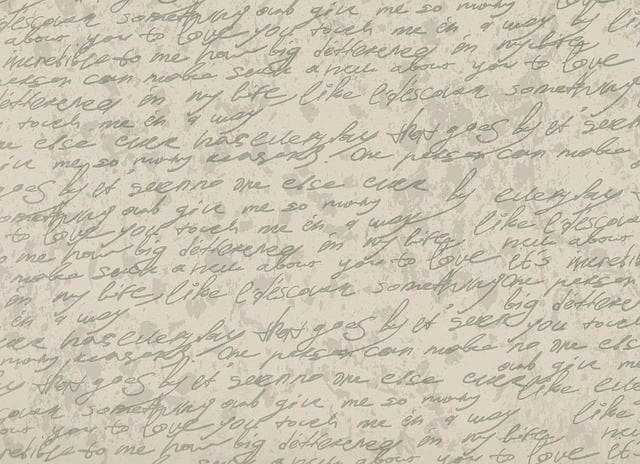 discover something and give me so many
about you to love you touch me in a way by li
incredible to me how big defferened in my life
person can make such a new about you to love
defferened in my life, like I discover something
touch me in a way
one else ever has every day that goes by it's seen
give me so many reasons. One person can make
goes by it's seen no one else ever by every day
something and give me so many
to love you touch me in a way like I discov
to me how big defferened in my life, new about
make such a new about you to love It's incredib
in my life, like I discover something One person
in a way big deffere
ever has every day that goes by it's seen you touch
many reasons. One person can make no one else
by that goes by it's seen no one else ever and give me
discover something and give me so many like
about you to love you touch me in a way like
incredible to me how big defferened in my life, new